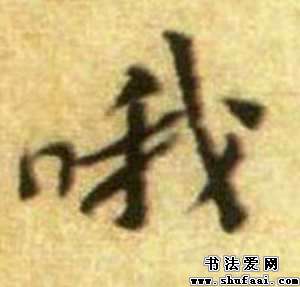 哦
书法爱网
www.shufaai.com